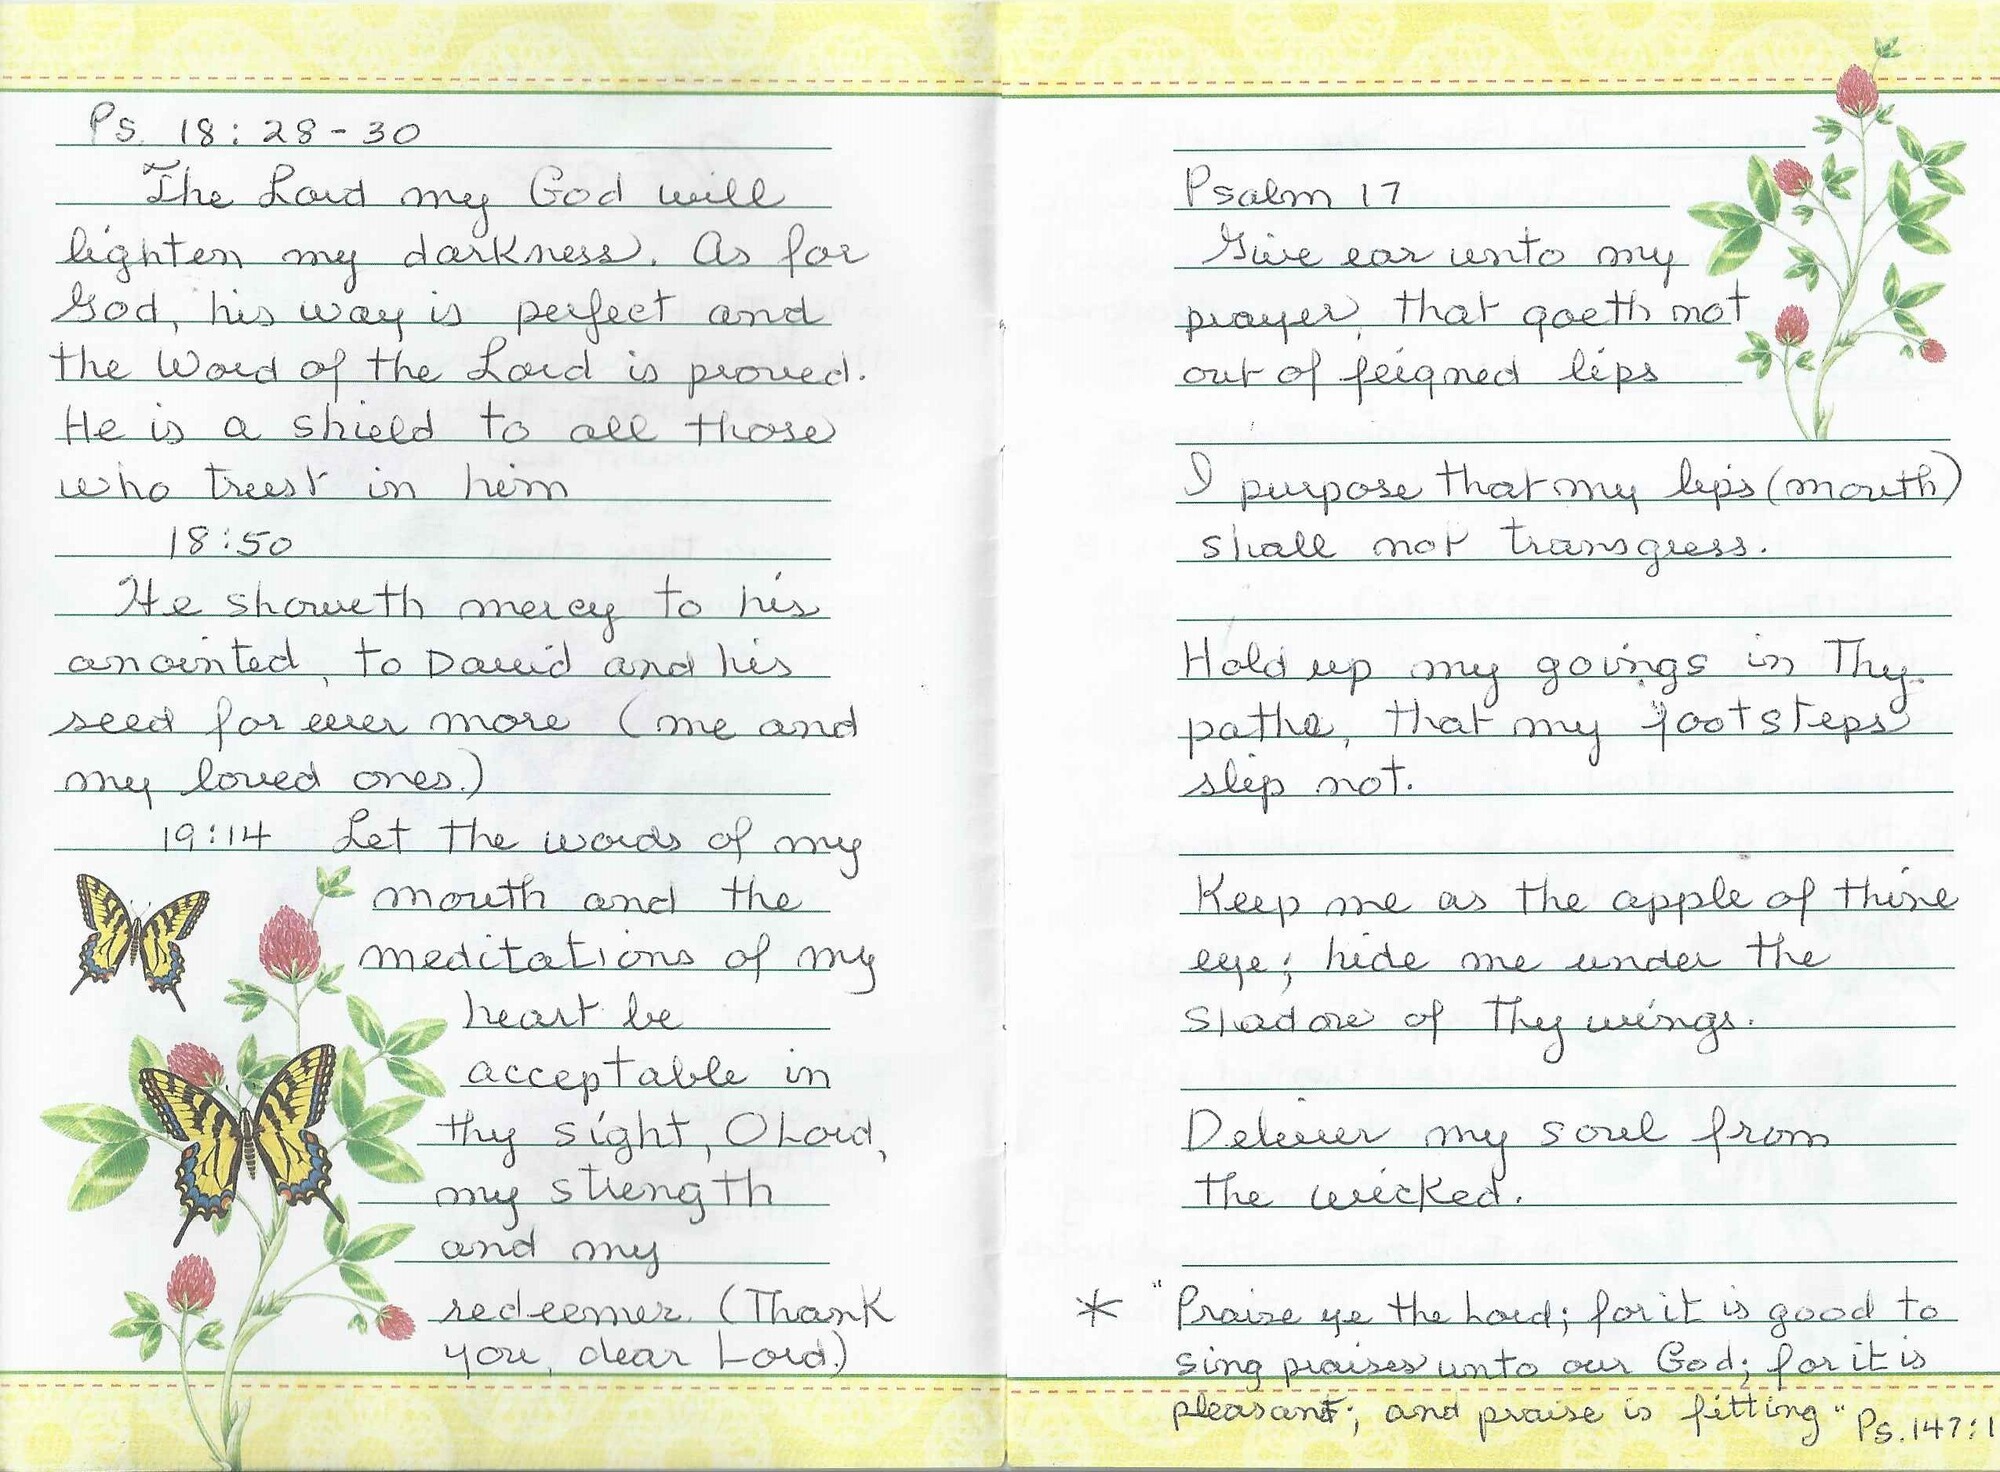 Ps. 18:28-30
The Lord my God will
lighten my darkness. As for
God, his way is perfect and
the Word of the Lord is proved.
He is a shield to all those
who trust in him
18:50
He showeth mercy to his
anointed, to David and his
seed for ever more (me and
my loved ones.)
19:14 Let the words of my
mouth and the
meditations of my
heart be
acceptable in
thy sight, O Lord,
my strength
and my
redeemer. (Thank
you, dear Lord.)
Psalm 17
Give ear unto my
prayer, that goeth not
out of feigned lips
I purpose that my lips (mouth)
shall not transgress.
Hold up my goings in Thy
paths, that my footsteps
slip not.
Keep me as the apple of thine
eye; hide me under the
shadow of Thy wings.
Deliver my soul from
the wicked.
* "Praise ye the Lord; for it is good to
sing praises unto our God; for it is
pleasant; and praise is fitting" Ps. 147:1